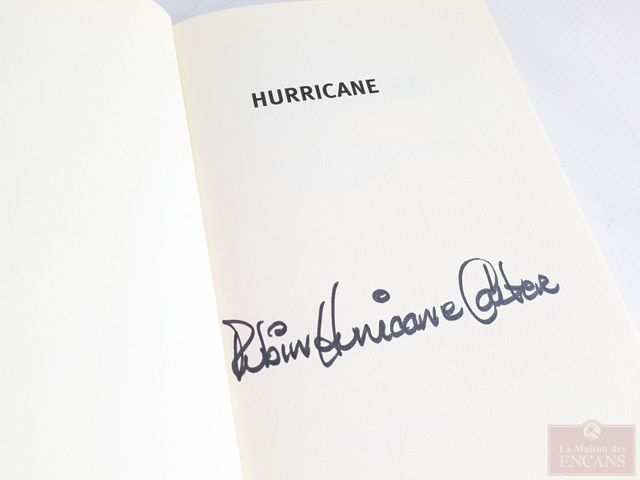 HURRICANE
Rubin Hurricane Carter
La Maison des
ENCANS